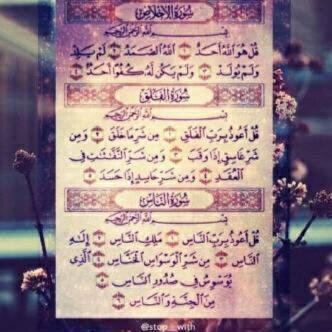 سُورَةُ الإِخْلَاصِ
بِسْمِ اللَّهِ الرَّحْمَٰنِ الرَّحِيمِ
قُلْ هُوَ اللَّهُ أَحَدٌ ١ اللَّهُ الصَّمَدُ ٢ لَمْ يَلِدْ
وَلَمْ يُولَدْ ٣ وَلَمْ يَكُن لَّهُ كُفُوًا أَحَدٌ ٤
سُورَةُ الْفَلَقِ
بِسْمِ اللَّهِ الرَّحْمَٰنِ الرَّحِيمِ
قُلْ أَعُوذُ بِرَبِّ الْفَلَقِ ١ مِن شَرِّ مَا خَلَقَ ٢ وَمِن
شَرِّ غَاسِقٍ إِذَا وَقَبَ ٣ وَمِن شَرِّ النَّفَّاثَاتِ فِي
الْعُقَدِ ٤ وَمِن شَرِّ حَاسِدٍ إِذَا حَسَدَ ٥
سُورَةُ النَّاسِ
بِسْمِ اللَّهِ الرَّحْمَٰنِ الرَّحِيمِ
قُلْ أَعُوذُ بِرَبِّ النَّاسِ ١ مَلِكِ النَّاسِ ٢ إِلَٰهِ
النَّاسِ ٣ مِن شَرِّ الْوَسْوَاسِ الْخَنَّاسِ ٤ الَّذِي
يُوَسْوِسُ فِي صُدُورِ النَّاسِ ٥
مِنَ الْجِنَّةِ وَالنَّاسِ ٦
@stop_with